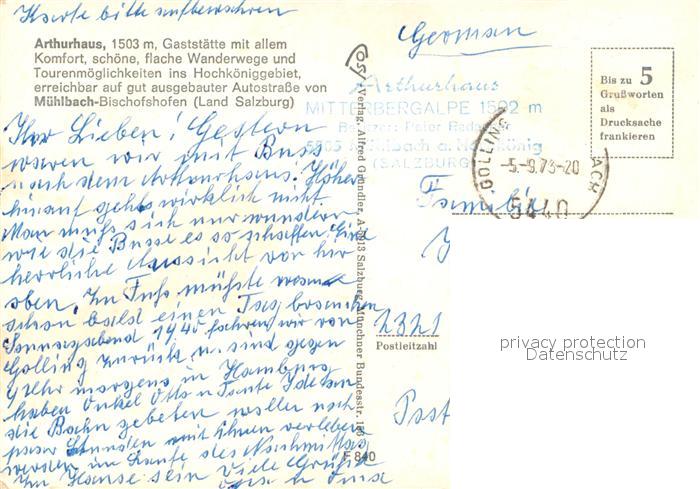 Karte bitte aufbewahren
German
Arthurhaus, 1503 m, Gaststätte mit allem
Komfort, schöne, flache Wanderwege und
Tourenmöglichkeiten ins Hochköniggebiet,
erreichbar auf gut ausgebauter Autostraße von
Mühlbach-Bischofshofen (Land Salzburg)
Arthurhaus
MITTERBERGALPE 1502 m
Besitzer: Peter
5505 Mühlbach a. Hochkönig
(SALZBURG)
Bis zu 5
Grußworten
als
Drucksache
frankieren
GOLLING
-5.-9.73-20
5440
Ihr Lieben! Gestern
waren wir mit Buss
nach dem Arthurhaus. Höher
hinauf gehts wirklich nicht.
Man muß sich nur wundern
wie die Busse es so schaffen. Eine
herrliche Aussicht von hier
oben. Im Fuß müßte
schon bald einen Tag
Sonnabend 19 40 fahren wir von
Golling zurück u. sind gegen
9 Uhr morgens in Hamburg
haben Onkel Otto u Tante
die Bahn gebeten wollen noch
paar Stunden mit ihnen verleben
werden im Laufe des Nachmittag
im Hause sein Viele Grüße
Familie
2321
Postleitzahl
Post
Verlag, Alfred Gründler, A-5013 Salzburg, Münchner Bundesstr.
F 840
privacy protection
Datenschutz